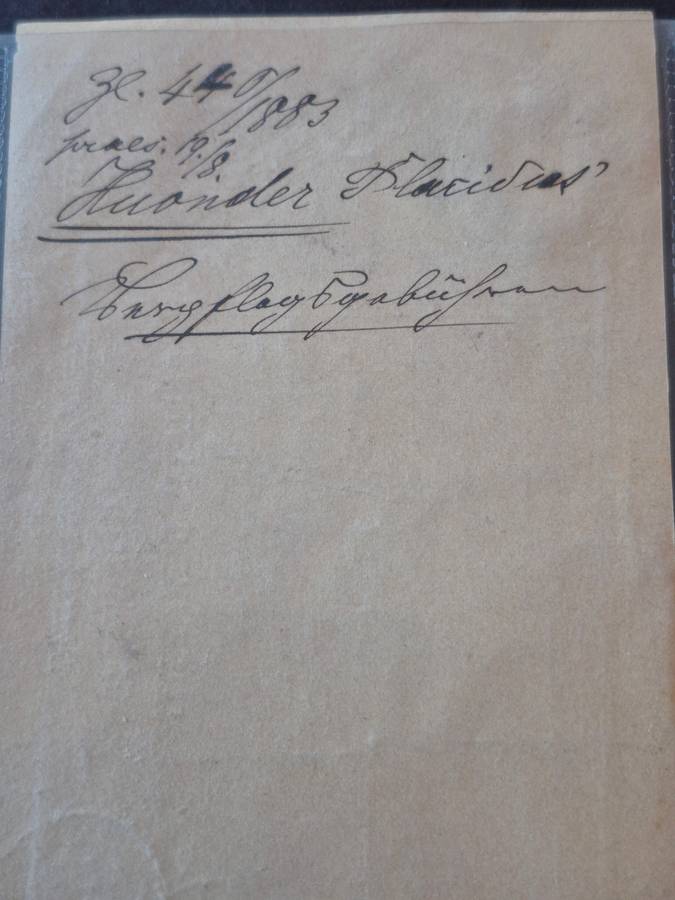 Zl. 440/1883
praes. 19./8.
Huonder Placidus'
Verpflegsgebühren